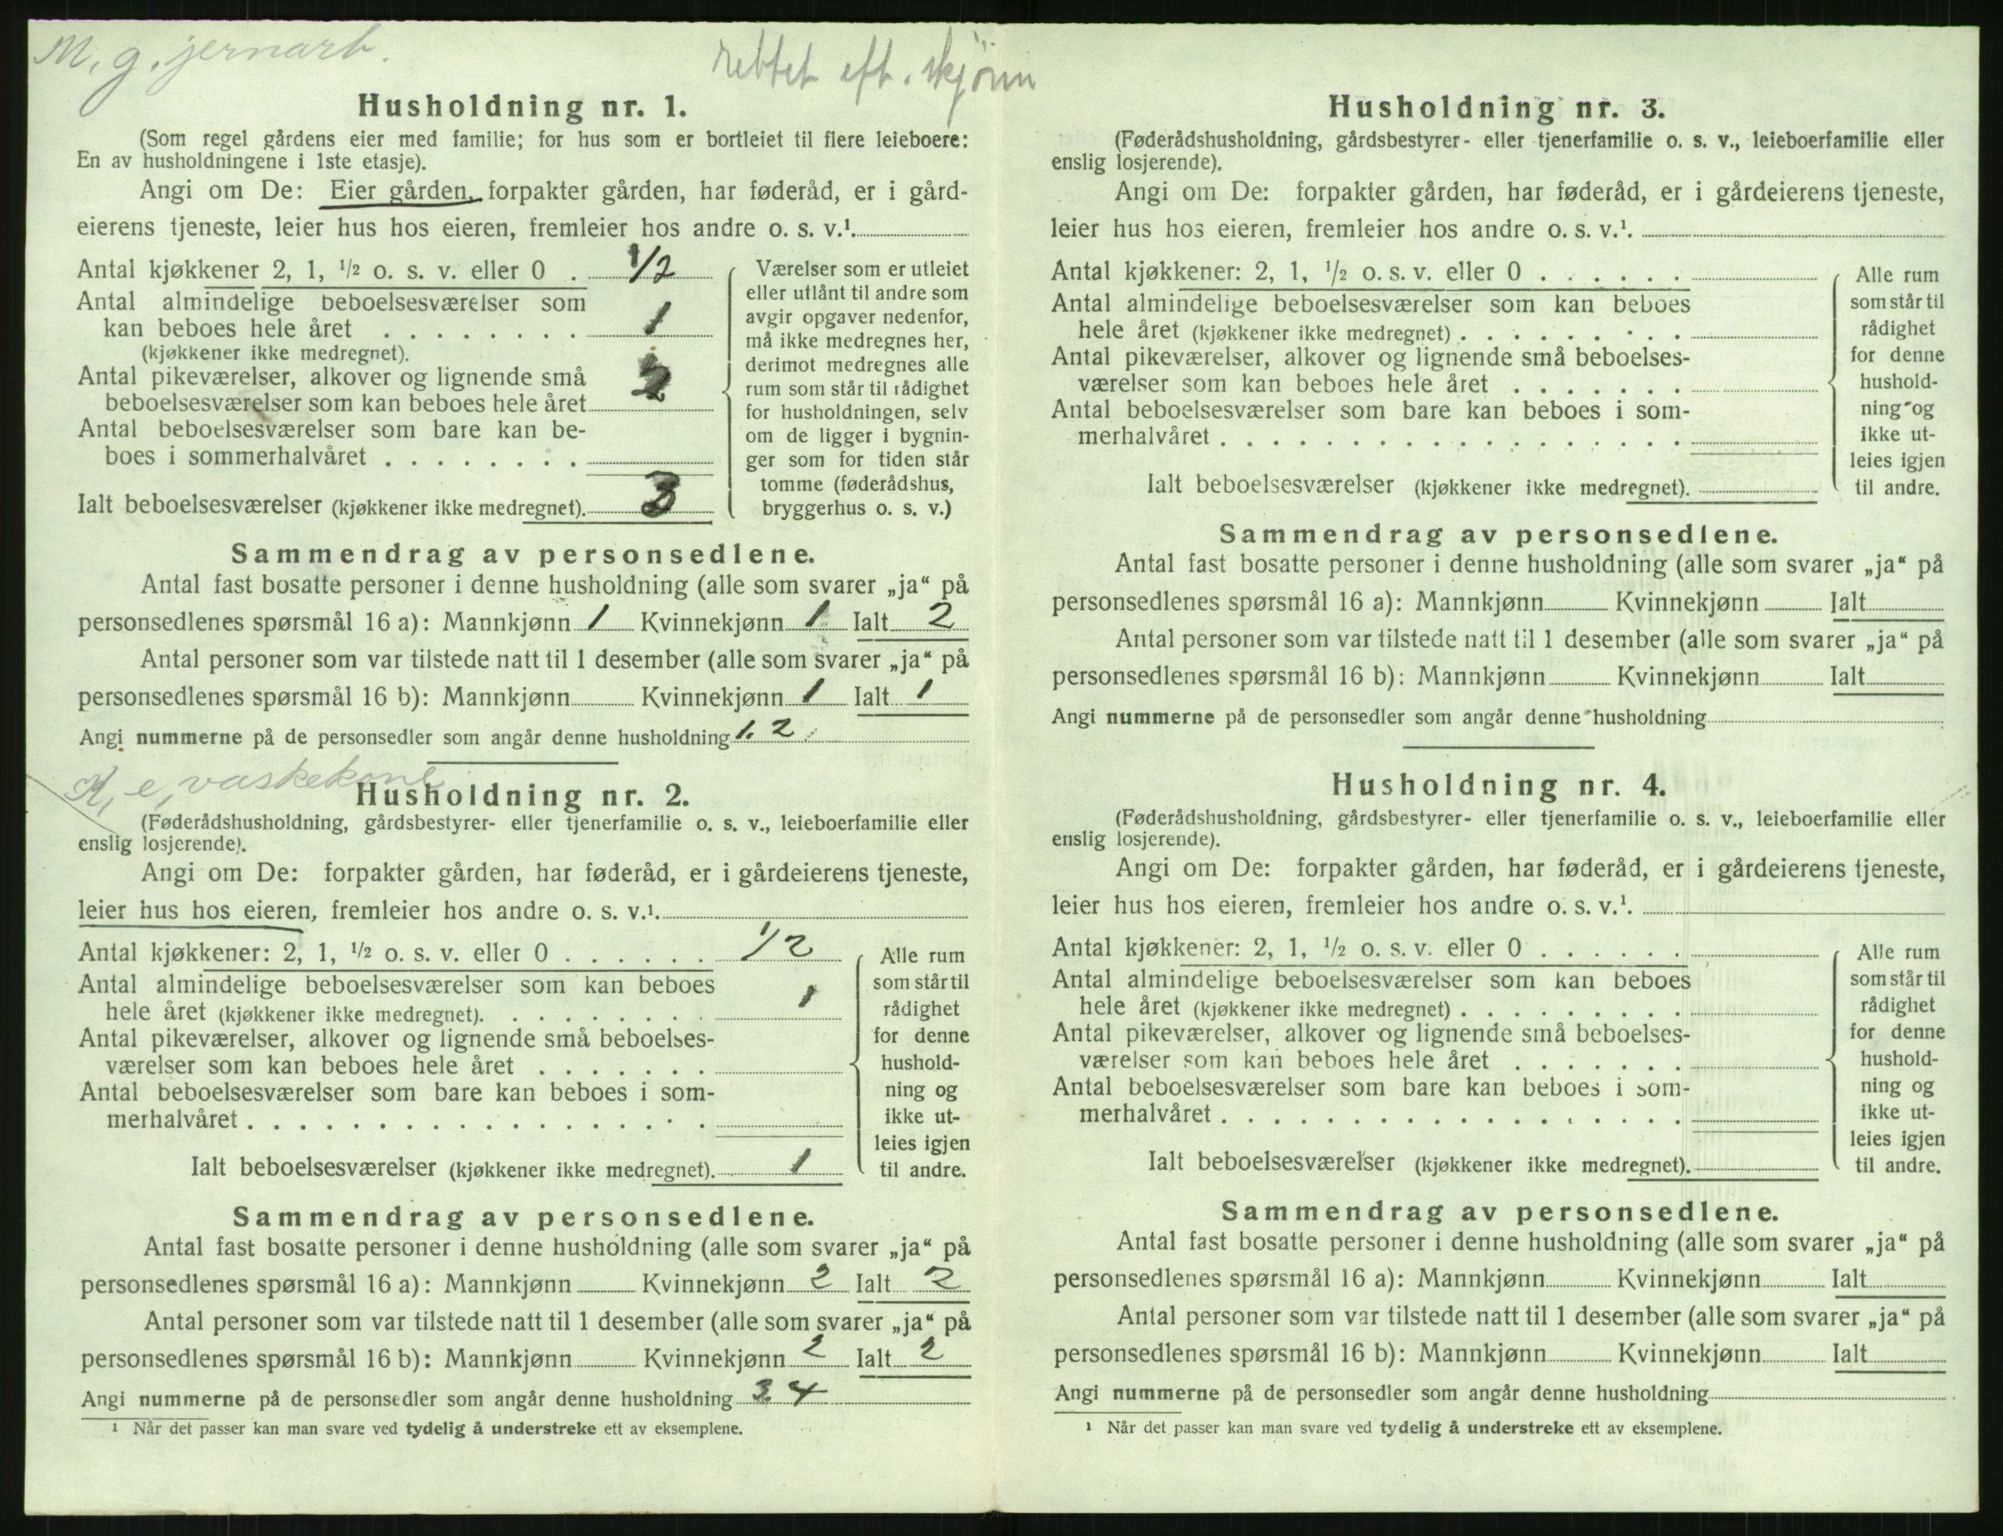 M. g. jernarb.
rettet eft. skjønn
Husholdning nr. 1.
(Som regel gårdens eier med familie; for hus som er bortleiet til flere leieboere:
En av husholdningene i 1ste etasje).
Angi om De: Eier gården, forpakter gården, har føderåd, er i gård-
eierens tjeneste, leier hus hos eieren, fremleier hos andre o. s. v.¹
Antal kjøkkener 2, 1, ½ o. s. v. eller 0 . 1/2
Antal almindelige beboelsesværelser som
kan beboes hele året . . . . . . . . 1
(kjøkkener ikke medregnet).
Antal pikeværelser, alkover og lignende små
beboelsesværelser som kan beboes hele året 2
Antal beboelsesværelser som bare kan be-
boes i sommerhalvåret . . . . . . . .
Ialt beboelsesværelser (kjøkkener ikke medregnet). 3
Værelser som er utleiet
eller utlånt til andre som
avgir opgaver nedenfor,
må ikke medregnes her,
derimot medregnes alle
rum som står til rådighet
for husholdningen, selv
om de ligger i bygnin-
ger som for tiden står
tomme (føderådshus,
bryggerhus o. s. v.)
Sammendrag av personsedlene.
Antal fast bosatte personer i denne husholdning (alle som svarer „ja“ på
personsedlenes spørsmål 16 a): Mannkjønn 1 Kvinnekjønn 1 Ialt 2
Antal personer som var tilstede natt til 1 desember (alle som svarer „ja“ på
personsedlenes spørsmål 16 b): Mannkjønn Kvinnekjønn 1 Ialt 1
Angi nummerne på de personsedler som angår denne husholdning 1. 2
K, e, vaskekone
Husholdning nr. 2.
(Føderådshusholdning, gårdsbestyrer- eller tjenerfamilie o. s. v., leieboerfamilie eller
enslig losjerende).
Angi om De: forpakter gården, har føderåd, er i gårdeierens tjeneste,
leier hus hos eieren, fremleier hos andre o. s. v.¹
Antal kjøkkener: 2, 1, ½ o. s. v. eller 0 . . . . . . 1/2
Antal almindelige beboelsesværelser som kan beboes
hele året (kjøkkener ikke medregnet). . . . . . . . . 1
Antal pikeværelser, alkover og lignende små beboelses-
værelser som kan beboes hele året . . . . . . .
Antal beboelsesværelser som bare kan beboes i som-
merhalvåret . . . . . . . . . . . . . . . . . .
Ialt beboelsesværelser (kjøkkener ikke medregnet). 1
Alle rum
som står til
rådighet
for denne
hushold-
ning og
ikke ut-
leies igjen
til andre.
Sammendrag av personsedlene.
Antal fast bosatte personer i denne husholdning (alle som svarer „ja“ på
personsedlenes spørsmål 16 a): Mannkjønn Kvinnekjønn 2 Ialt 2
Antal personer som var tilstede natt til 1 desember (alle som svarer „ja“ på
personsedlenes spørsmål 16 b): Mannkjønn Kvinnekjønn 2 Ialt 2
Angi nummerne på de personsedler som angår denne husholdning 3. 4
¹ Når det passer kan man svare ved tydelig å understreke ett av eksemplene.
Husholdning nr. 3.
(Føderådshusholdning, gårdsbestyrer- eller tjenerfamilie o. s. v., leieboerfamilie eller
enslig losjerende).
Angi om De: forpakter gården, har føderåd, er i gårdeierens tjeneste,
leier hus hos eieren, fremleier hos andre o. s. v.¹
Antal kjøkkener: 2, 1, ½ o. s. v. eller 0 . . . . . .
Antal almindelige beboelsesværelser som kan beboes
hele året (kjøkkener ikke medregnet) . . . . . . . . .
Antal pikeværelser, alkover og lignende små beboelses-
værelser som kan beboes hele året . . . . . . .
Antal beboelsesværelser som bare kan beboes i som-
merhalvåret . . . . . . . . . . . . . . . . . .
Ialt beboelsesværelser (kjøkkener ikke medregnet).
Alle rum
som står til
rådighet
for denne
hushold-
ning og
ikke ut-
leies igjen
til andre.
Sammendrag av personsedlene.
Antal fast bosatte personer i denne husholdning (alle som svarer „ja“ på
personsedlenes spørsmål 16 a): Mannkjønn Kvinnekjønn Ialt
Antal personer som var tilstede natt til 1 desember (alle som svarer „ja“ på
personsedlenes spørsmål 16 b): Mannkjønn Kvinnekjønn Ialt
Angi nummerne på de personsedler som angår denne husholdning
Husholdning nr. 4.
(Føderådshusholdning, gårdsbestyrer- eller tjenerfamilie o. s. v., leieboerfamilie eller
enslig losjerende).
Angi om De: forpakter gården, har føderåd, er i gårdeierens tjeneste,
leier hus hos eieren, fremleier hos andre o. s. v.¹
Antal kjøkkener: 2, 1, ½ o. s. v. eller 0 . . . . . .
Antal almindelige beboelsesværelser som kan beboes
hele året (kjøkkener ikke medregnet) . . . . . . . . .
Antal pikeværelser, alkover og lignende små beboelses-
værelser som kan beboes hele året . . . . . . .
Antal beboelsesværelser som bare kan beboes i som-
merhalvåret . . . . . . . . . . . . . . . . . .
Ialt beboelsesværelser (kjøkkener ikke medregnet).
Alle rum
som står til
rådighet
for denne
hushold-
ning og
ikke ut-
leies igjen
til andre.
Sammendrag av personsedlene.
Antal fast bosatte personer i denne husholdning (alle som svarer „ja“ på
personsedlenes spørsmål 16 a): Mannkjønn Kvinnekjønn Ialt
Antal personer som var tilstede natt til 1 desember (alle som svarer „ja“ på
personsedlenes spørsmål 16 b): Mannkjønn Kvinnekjønn Ialt
Angi nummerne på de personsedler som angår denne husholdning
¹ Når det passer kan man svare ved tydelig å understreke ett av eksemplene.